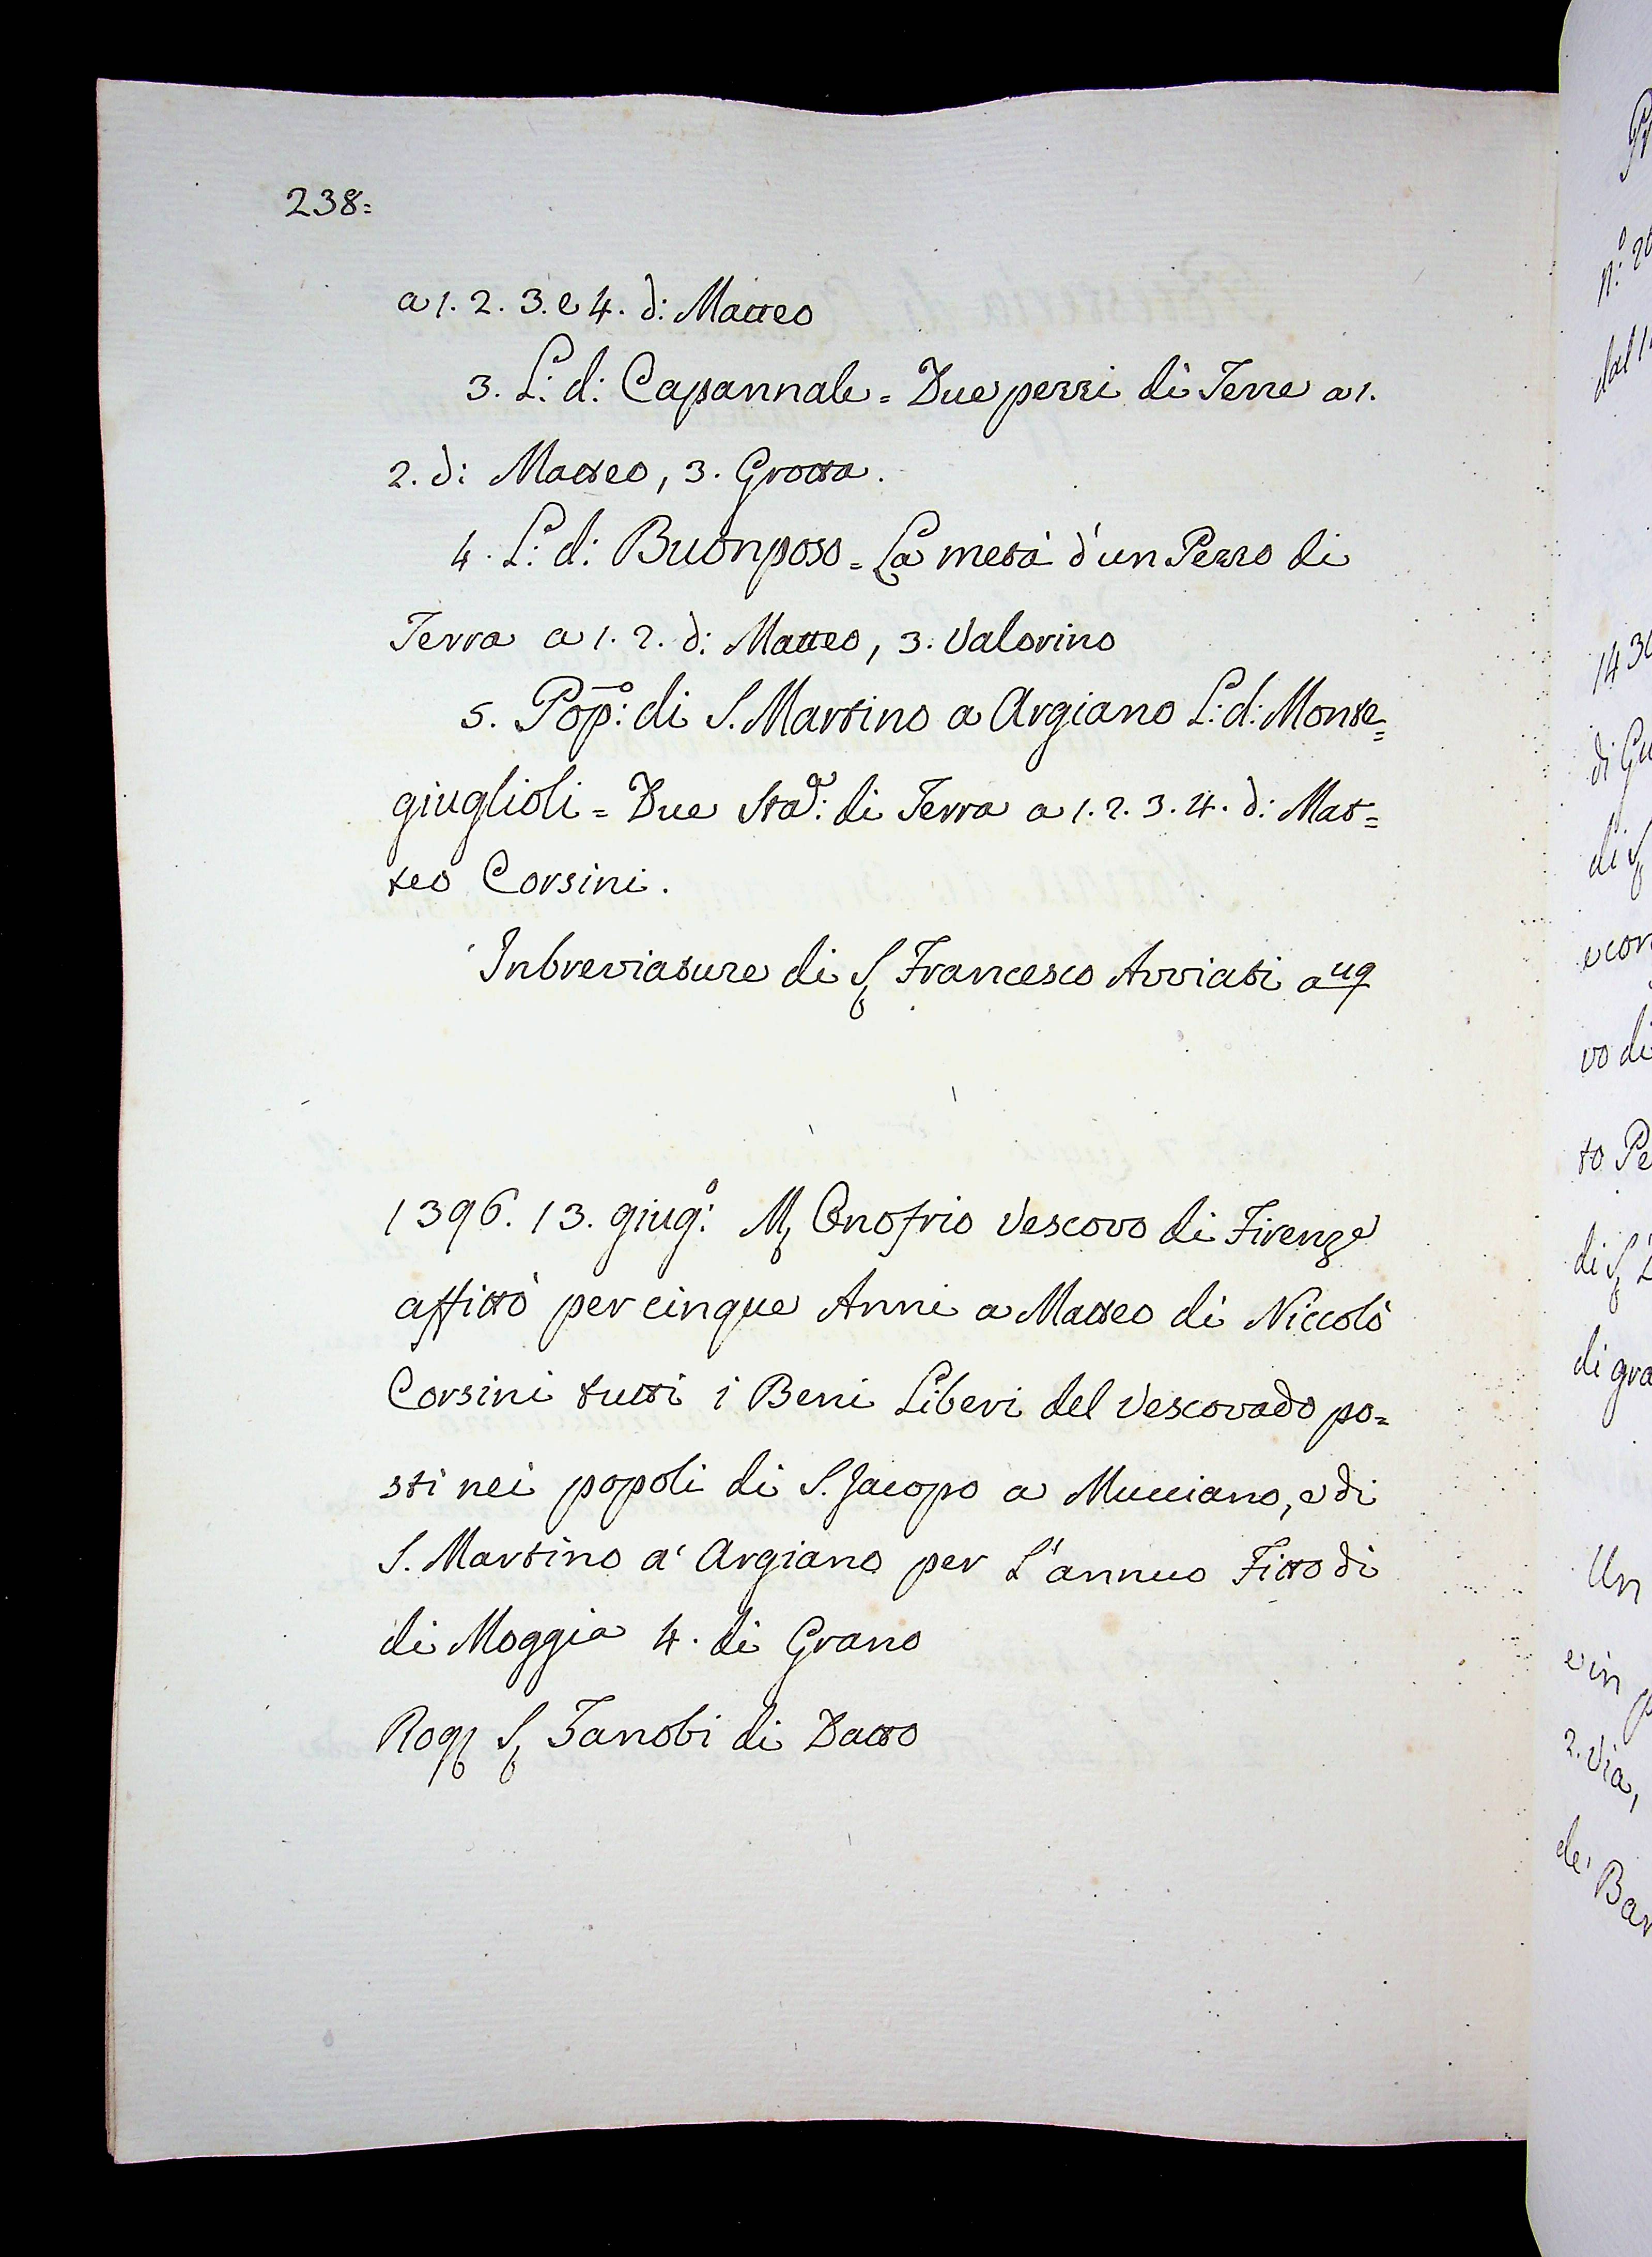 238=
a 1. 2. 3. e 4. d: Matteo
3. L: d: Capannale = Due pezzi di Terre a 1.
2. d: Matteo, 3. Grotta.
4. L: d: Buonposo = La metà d'un Pezzo di
Terra a 1. 2. d: Matteo, 3. Valorino
5. Pop:º di S. Martino a Argiano L: d: Monte=
giuglioli = Due Stad: di Terra a 1. 2. 3. 4. d: Mat=
teo Corsini.
Inbreviature di S. Francesco Arriati a
1396. 13. giug:º M. Onofrio Vescovo di Firenze
affittò per cinque Anni a Matteo di Niccolò
Corsini tutti i Beni Liberi del Vescovado po=
sti nei popoli di S. Jacopo a Mucciano, e di
S. Martino a' Argiano per L'annuo Fitto di
di Moggia 4. di Grano
Rog. S. Zanobi di Datto
dal
1430
di
di
e con
vo di
to Pe
di S.
di gra
Un
e in
2. Via,
de' Bar